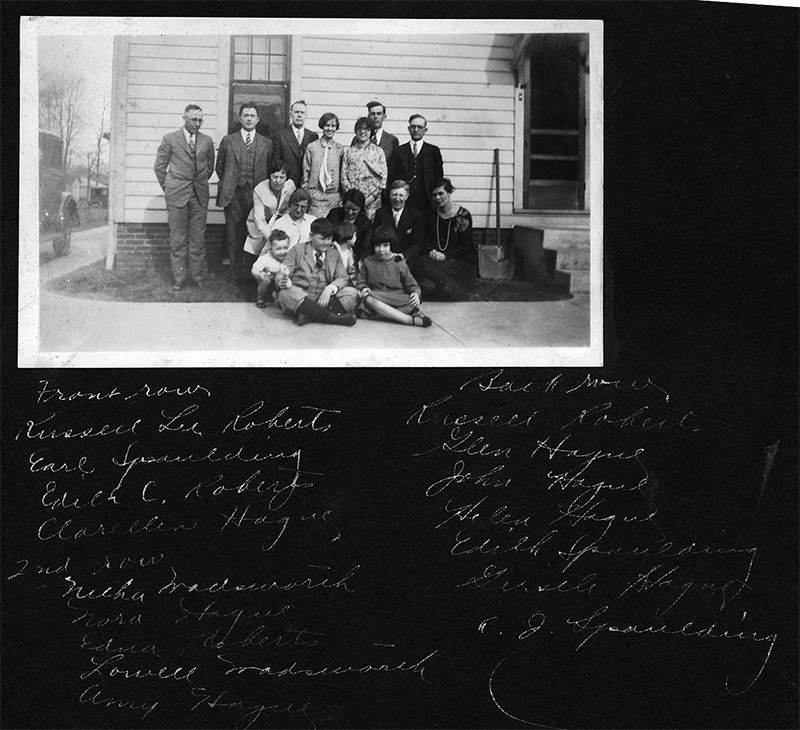 Front row
Russell Lee Roberts
Earl Spaulding
Edith C. Roberts
Hague
2nd row
Wadsworth
Nora Hague
Edna Roberts
Lowell Wadsworth
Amy Hague
Back row
Russell Roberts
Glen Hague
John Hague
Helen Hague
Edith Spaulding
Hague
J. Spaulding